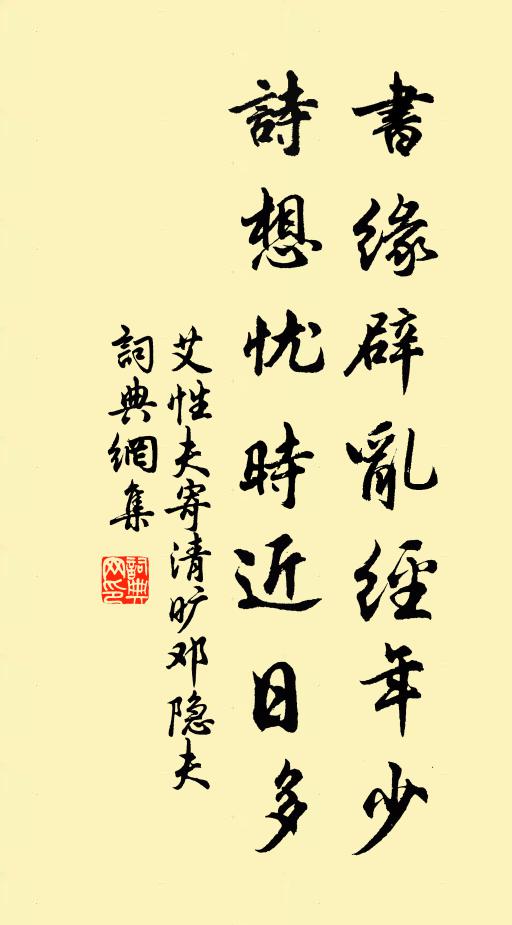 書缘辟亂經年少
詩想忧時近日多
艾性夫寄清旷邓隐夫
詞典網集
詞典
网印